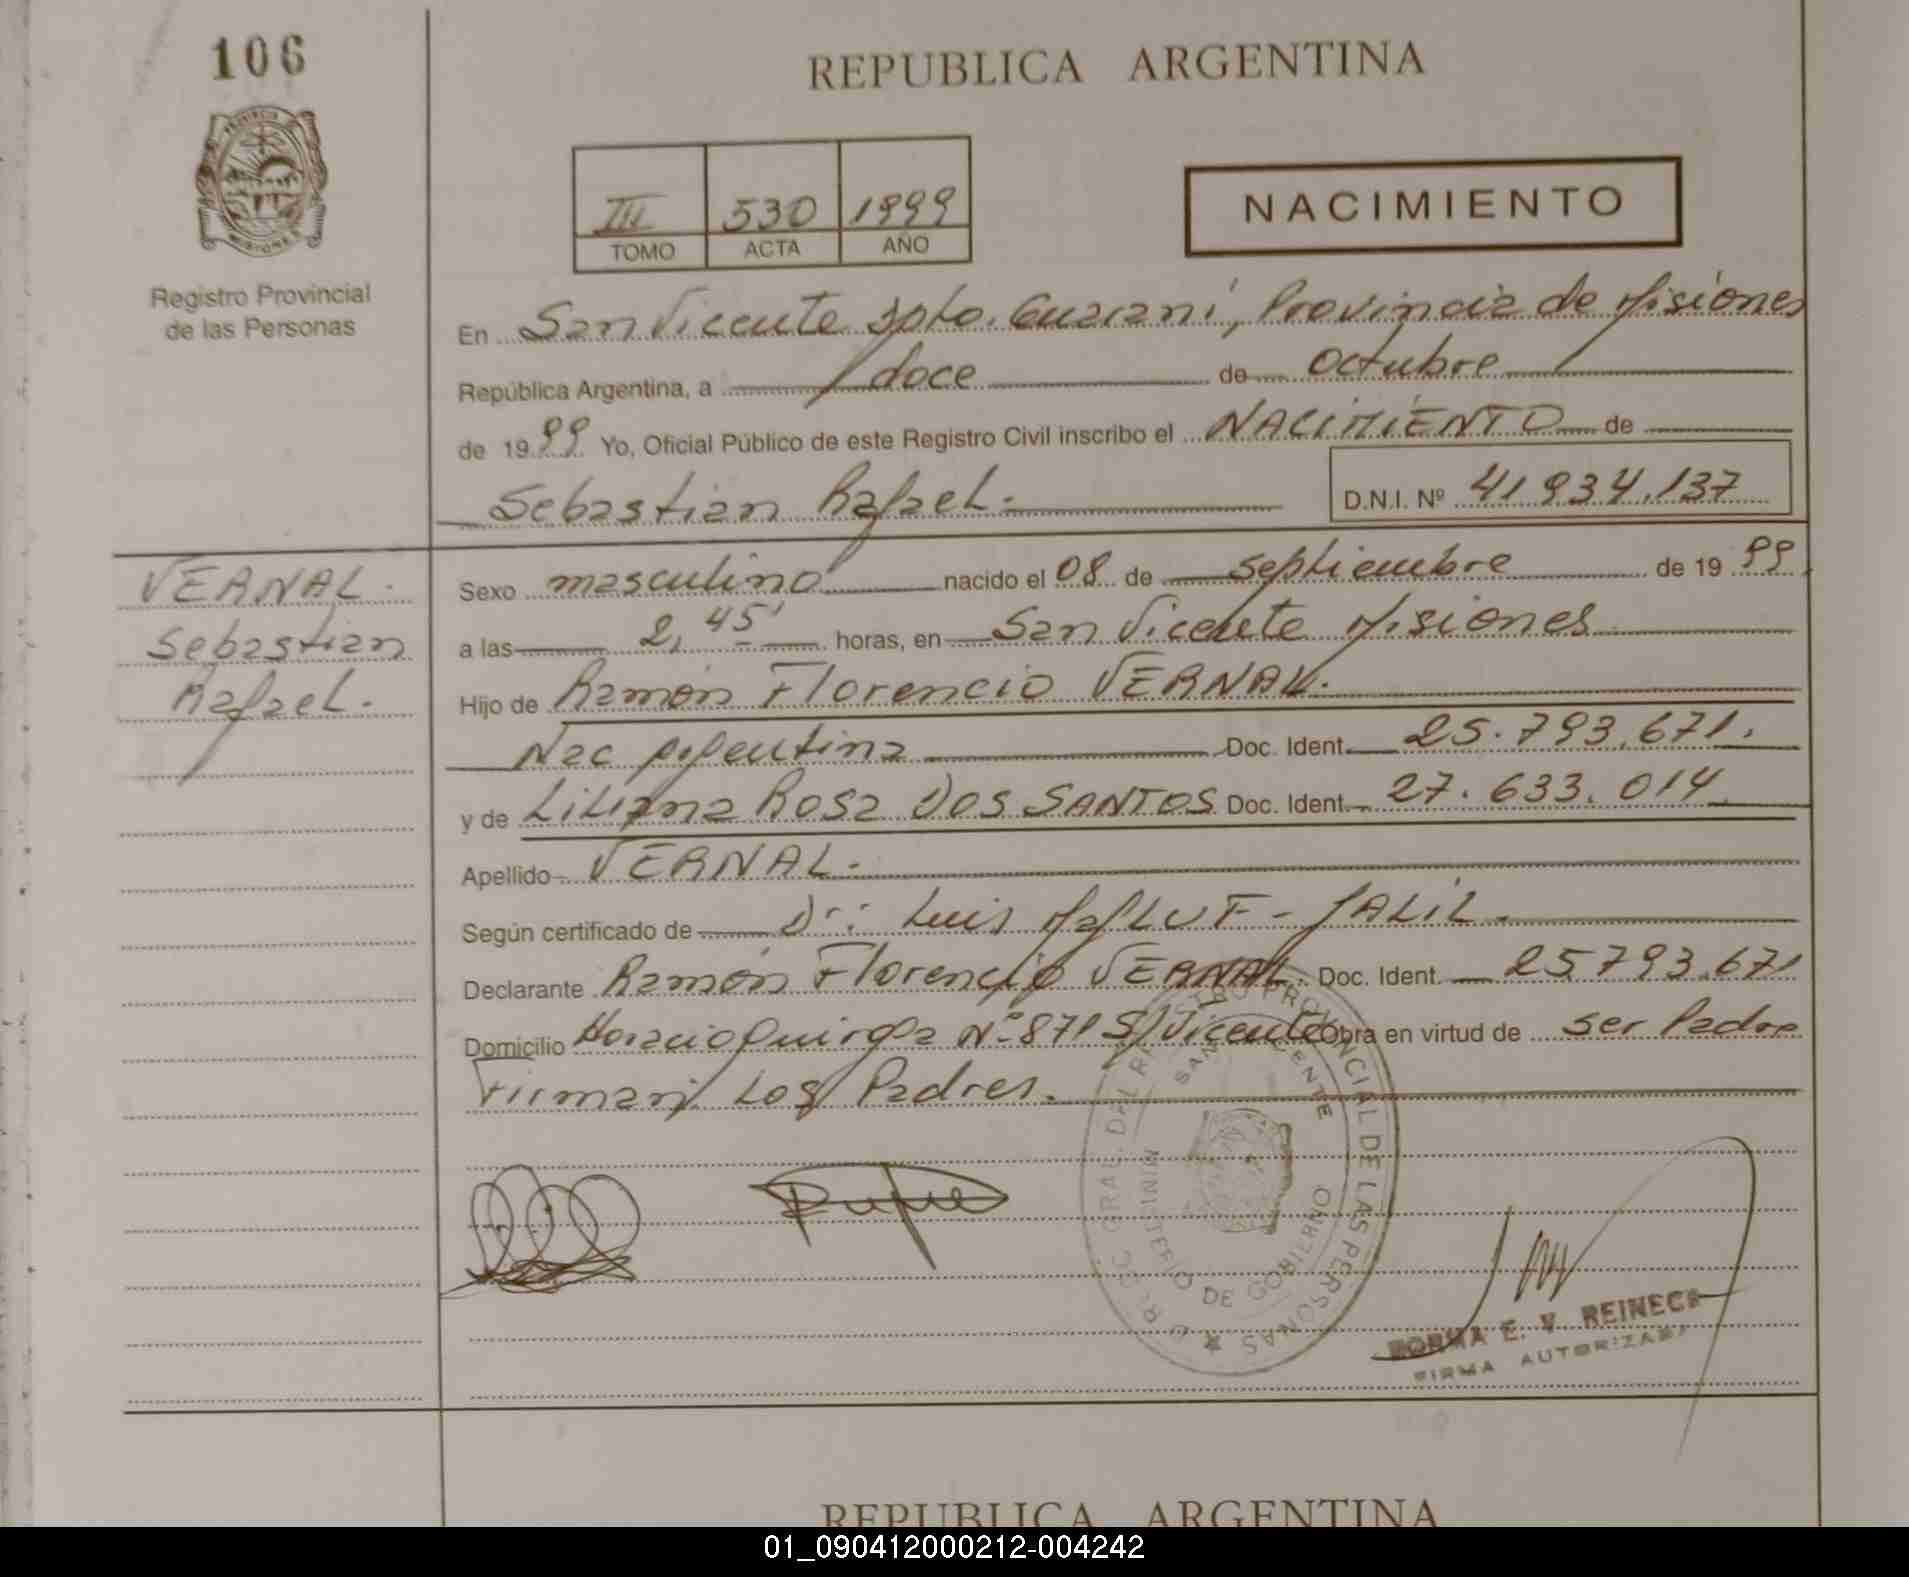 106
REPUBLICA ARGENTINA
PROVINCIA
MISIONES
Registro Provincial
de las Personas
III 530 1999
TOMO ACTA AÑO
NACIMIENTO
En San Vicente Dpto. Guarani, Provincia de Misiones
República Argentina, a doce de octubre
de 1999 Yo, Oficial Público de este Registro Civil inscribo el NACIMIENTO de
Sebastian Rafael.
D.N.I. Nº 41934.137
VERNAL.
Sebastian
Rafael.
Sexo masculino nacido el 08 de septiembre de 1999
a las 2,45' horas, en San Vicente Misiones
Hijo de Ramón Florencio VERNAL.
Nac Argentina Doc. Ident. 25.793.671.
y de Liliana Rosa DOS SANTOS Doc. Ident. 27.633.014
Apellido VERNAL.
Según certificado de Dr: Luis MafLUF-JALIL.
Declarante Ramón Florencio VERNAL. Doc. Ident. 25793.671
Domicilio Horacio Quiroga Nº 871 S/Vicente Obra en virtud de ser Padre
Firman Los Padres.
REGISTRO PROVINCIAL DE LAS PERSONAS
SAN VICENTE
MINISTERIO DE GOBIERNO
NORMA E. V. REINECK
FIRMA AUTORIZADA
REPUBLICA ARGENTINA
01_090412000212-004242